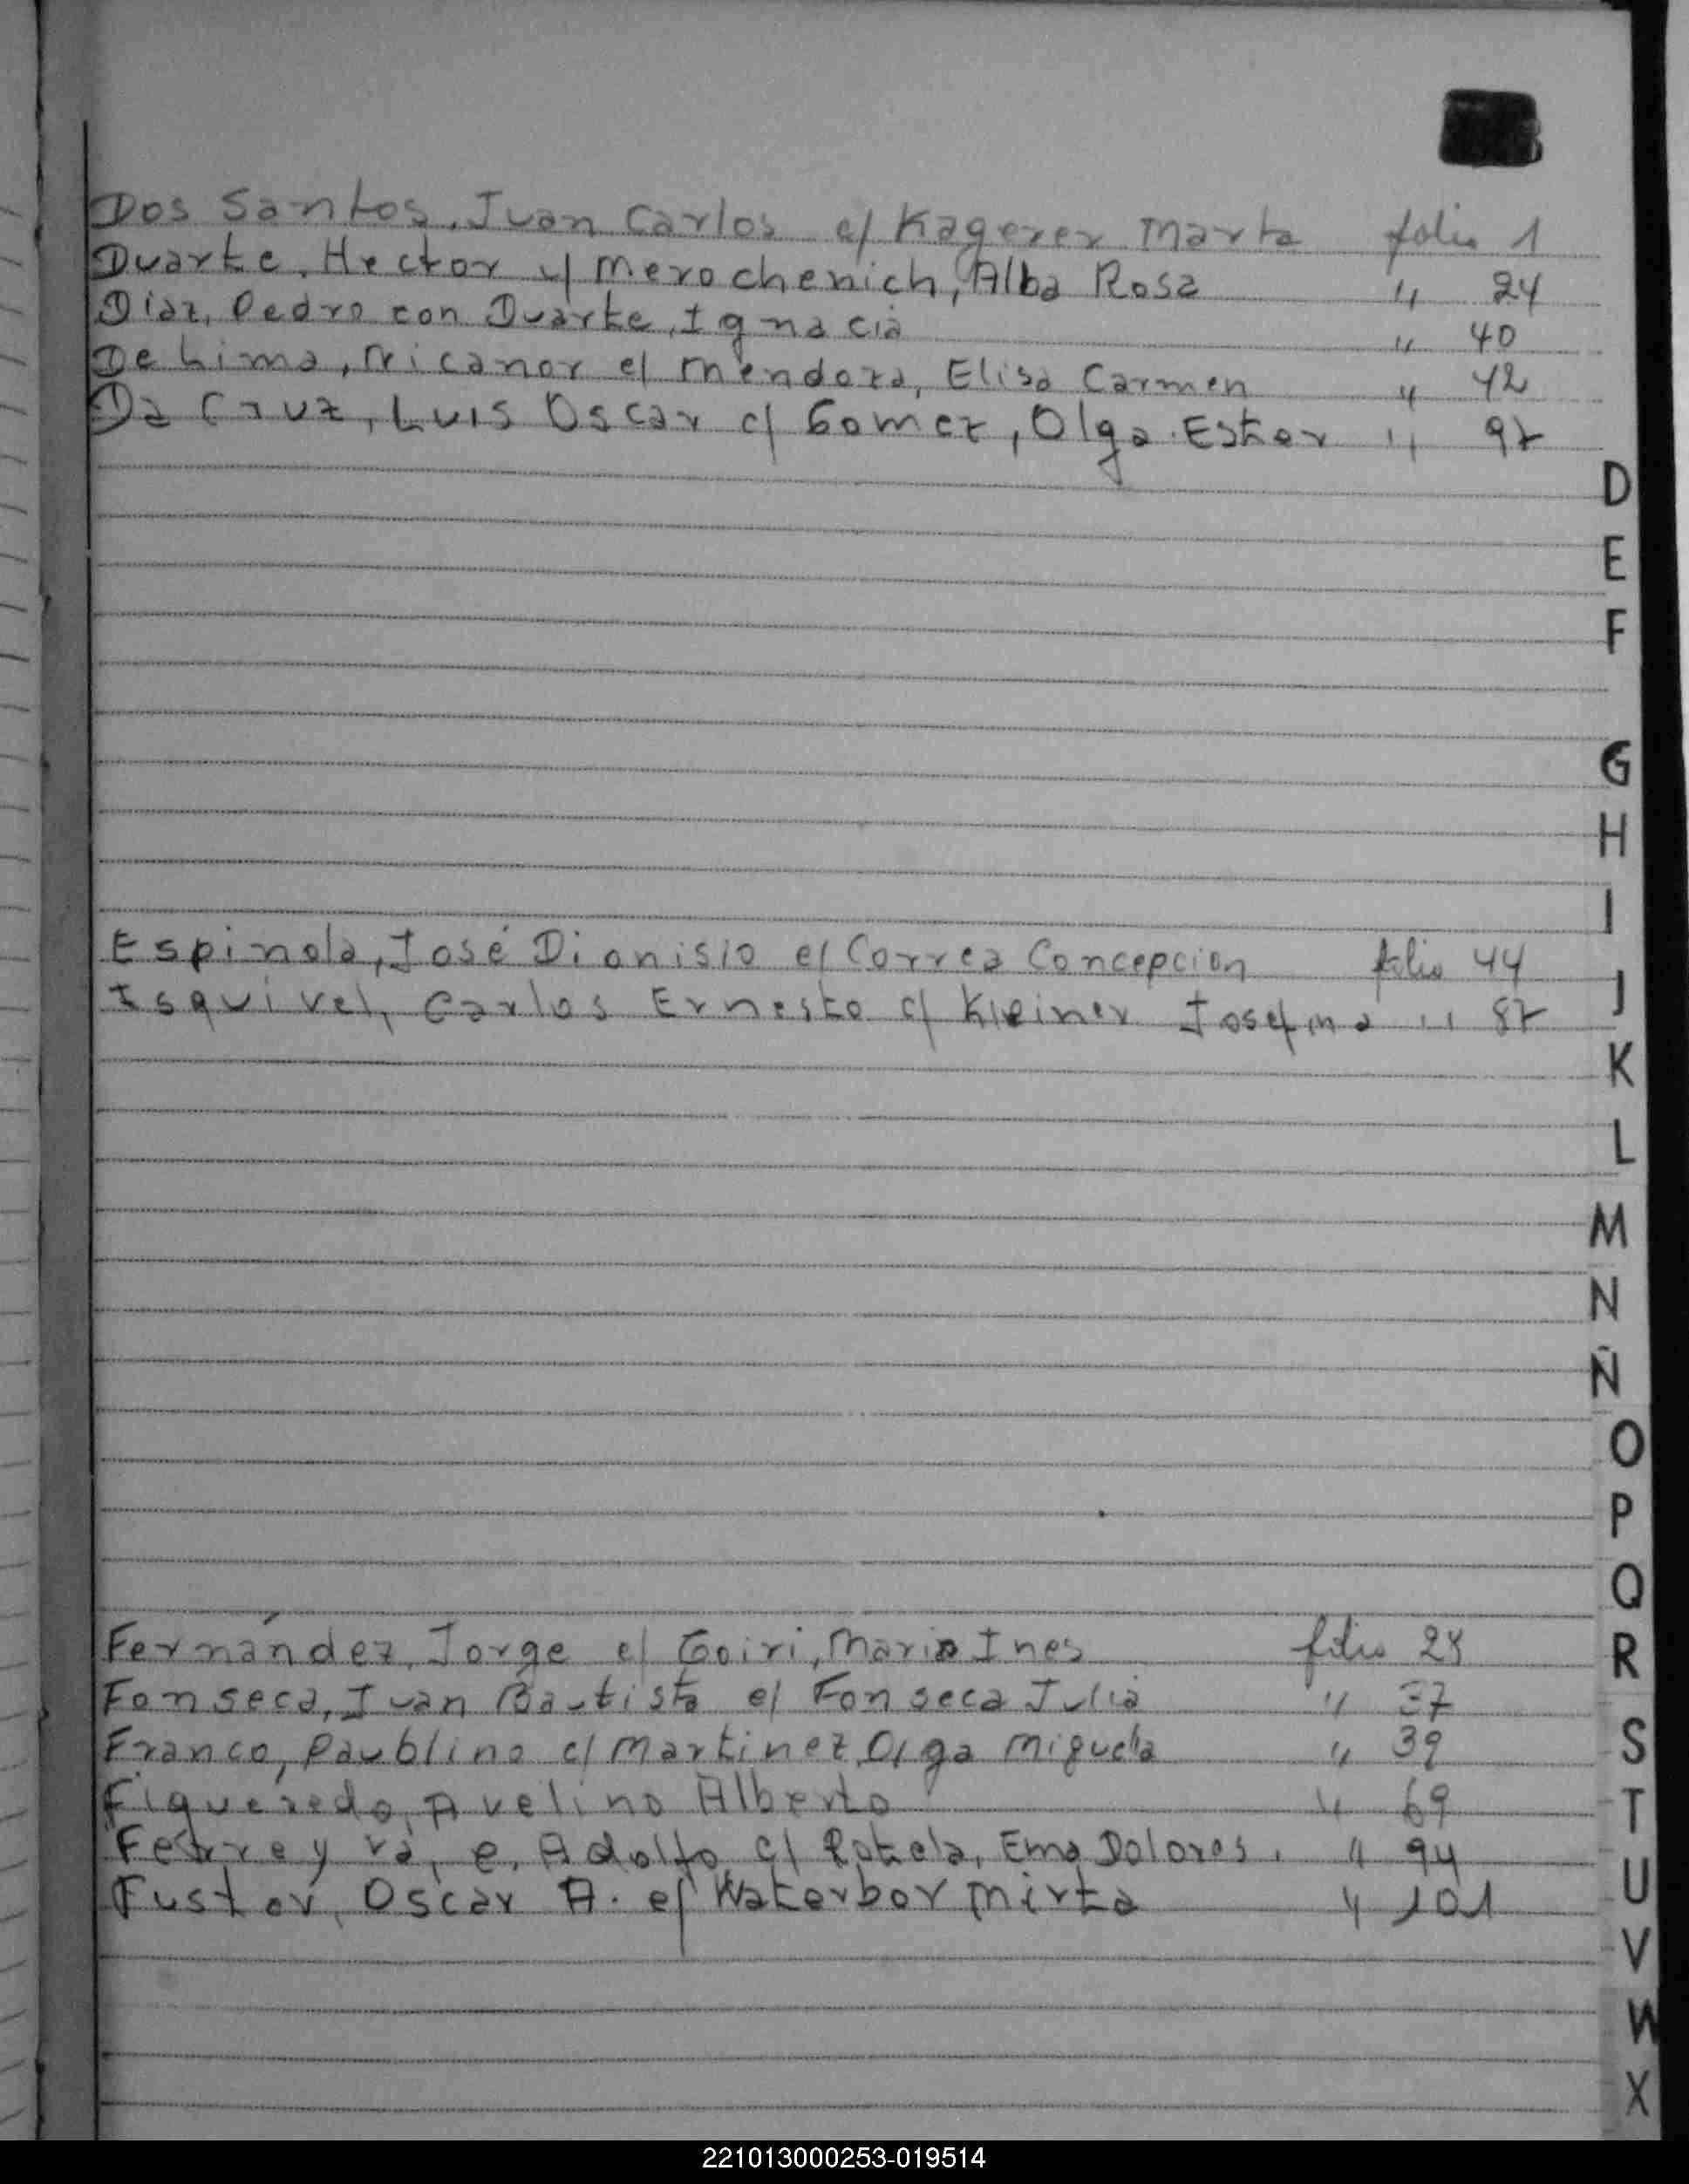 Dos Santos, Juan Carlos c/ Kagerer Marta folio 1
Duarte, Hector c/ Merochenich, Alba Rosa " 24
Diaz, Pedro con Duarte, Ignacia " 40
De Lima, Nicanor c/ Mendoza, Elisa Carmen " 42
Da Cruz, Luis Oscar c/ Gomez, Olga Ester " 97
D
E
F
G
H
I
Espinola, José Dionisio c/ Correa Concepcion folio 44
J
Isquivel, Carlos Ernesto c/ Kleiner Josefina " 87
K
L
M
N
Ñ
O
P
Q
Fernández, Jorge c/ Goiri, Maria Ines folio 28
R
Fonseca, Juan Bautista c/ Fonseca Julia " 37
Franco, Paublino c/ Martinez Olga Miguela " 39
S
Figueredo, Avelino Alberto " 69
T
Ferreyra, e, Adolfo c/ Ema Dolores. " 94
U
Fuster, Oscar A. c/ Waterbor Mirta " 101
V
W
X
221013000253-019514